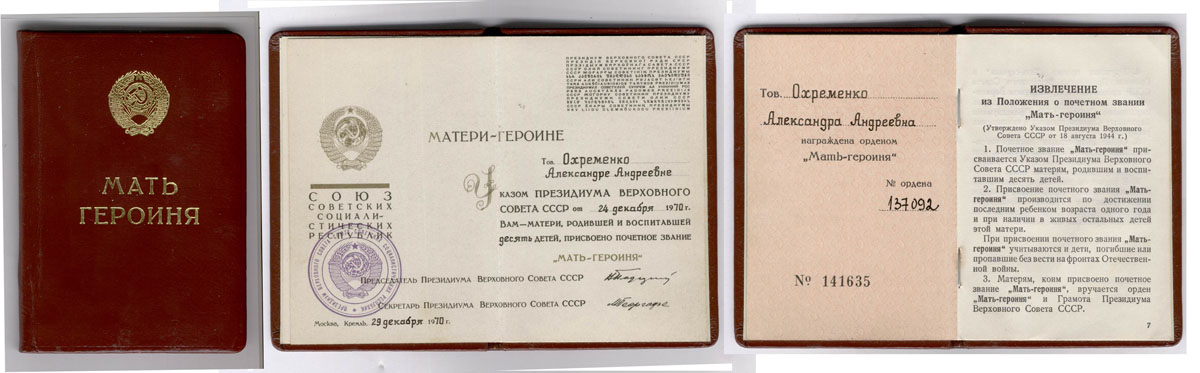 МАТЬ
ГЕРОИНЯ
СОЮЗ
СОВЕТСКИХ
СОЦИАЛИ-
СТИЧЕСКИХ
РЕСПУБЛИК
МАТЕРИ-ГЕРОИНЕ
Тов. Охременко
Александре Андреевне
Указом Президиума Верховного
Совета СССР от 24 декабря 1970 г.
Вам—матери, родившей и воспитавшей
десять детей, присвоено почетное звание
„МАТЬ-ГЕРОИНЯ"
Председатель Президиума Верховного Совета СССР
Секретарь Президиума Верховного Совета СССР
Москва, Кремль. 29 декабря 1970 г.
Тов. Охременко
Александра Андреевна
награждена орденом
„Мать-героиня"
№ ордена
137092
№ 141635
ИЗВЛЕЧЕНИЕ
из Положения о почетном звании
„Мать-героиня"
(Утверждено Указом Президиума Верховного
Совета СССР от 18 августа 1944 г.)
1. Почетное звание „Мать-героиня" при-
сваивается Указом Президиума Верховного
Совета СССР матерям, родившим и воспи-
тавшим десять детей.
2. Присвоение почетного звания „Мать-
героиня" производится по достижении
последним ребенком возраста одного года
и при наличии в живых остальных детей
этой матери.
При присвоении почетного звания „Мать-
героиня" учитываются и дети, погибшие или
пропавшие без вести на фронтах Отечествен-
ной войны.
3. Матерям, коим присвоено почетное
звание „Мать-героиня", вручается орден
„Мать-героиня" и Грамота Президиума
Верховного Совета СССР.
7